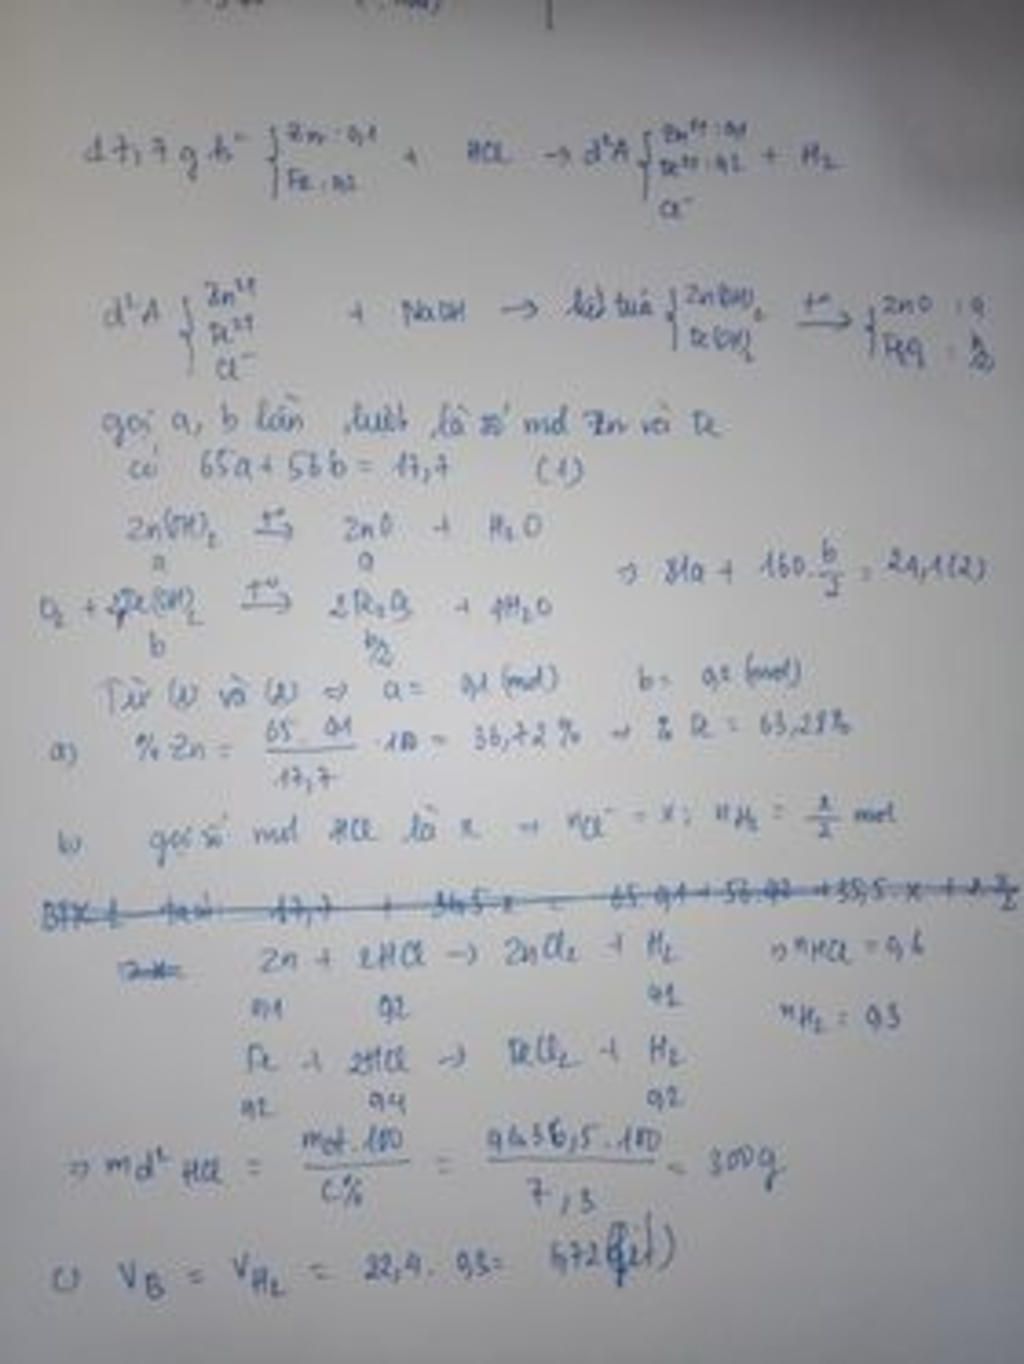 17,7 g hh { Zn : 0,1 + HCl → d²A { Zn²⁺ : 0,1 + H₂
Fe : 0,2 Fe²⁺ : 0,2
Cl⁻
d²A { Zn²⁺ + NaOH → kết tủa { Zn(OH)₂ t° → { ZnO : a
Fe²⁺ Fe(OH)₂ : b/2
Cl⁻
gọi a, b lần lượt là số mol Zn và Fe
có 65a + 56b = 17,7 (1)
Zn(OH)₂ t° → ZnO + H₂O
a a
⇒ 81a + 160. b/2 = 24,1 (2)
O₂ + Fe(OH)₂ t° → 2Fe₂O₃ + 4H₂O
b b/2
Từ (1) và (2) ⇒ a = 0,1 (mol) b = 0,2 (mol)
a) % Zn = 65 . 0,1 / 17,7 . 100 = 36,72 % → % Fe = 63,28%
b) gọi số mol HCl là x → nCl⁻ = x ; nH₂ = x/2 mol
17,7 + 36,5 x = 65.0,1 + 56.0,2 + 35,5.x + 2 x/2
Zn + 2HCl → ZnCl₂ + H₂ ⇒ nHCl = 0,6
0,1 0,2 0,1 nH₂ = 0,3
Fe + 2HCl → FeCl₂ + H₂
0,2 0,4 0,2
⇒ md² HCl = mct . 100 / C% = 0,6.36,5 . 100 / 7,3 = 300g
c) V_B = V_H₂ = 22,4 . 0,3 = 6,72 (lít)